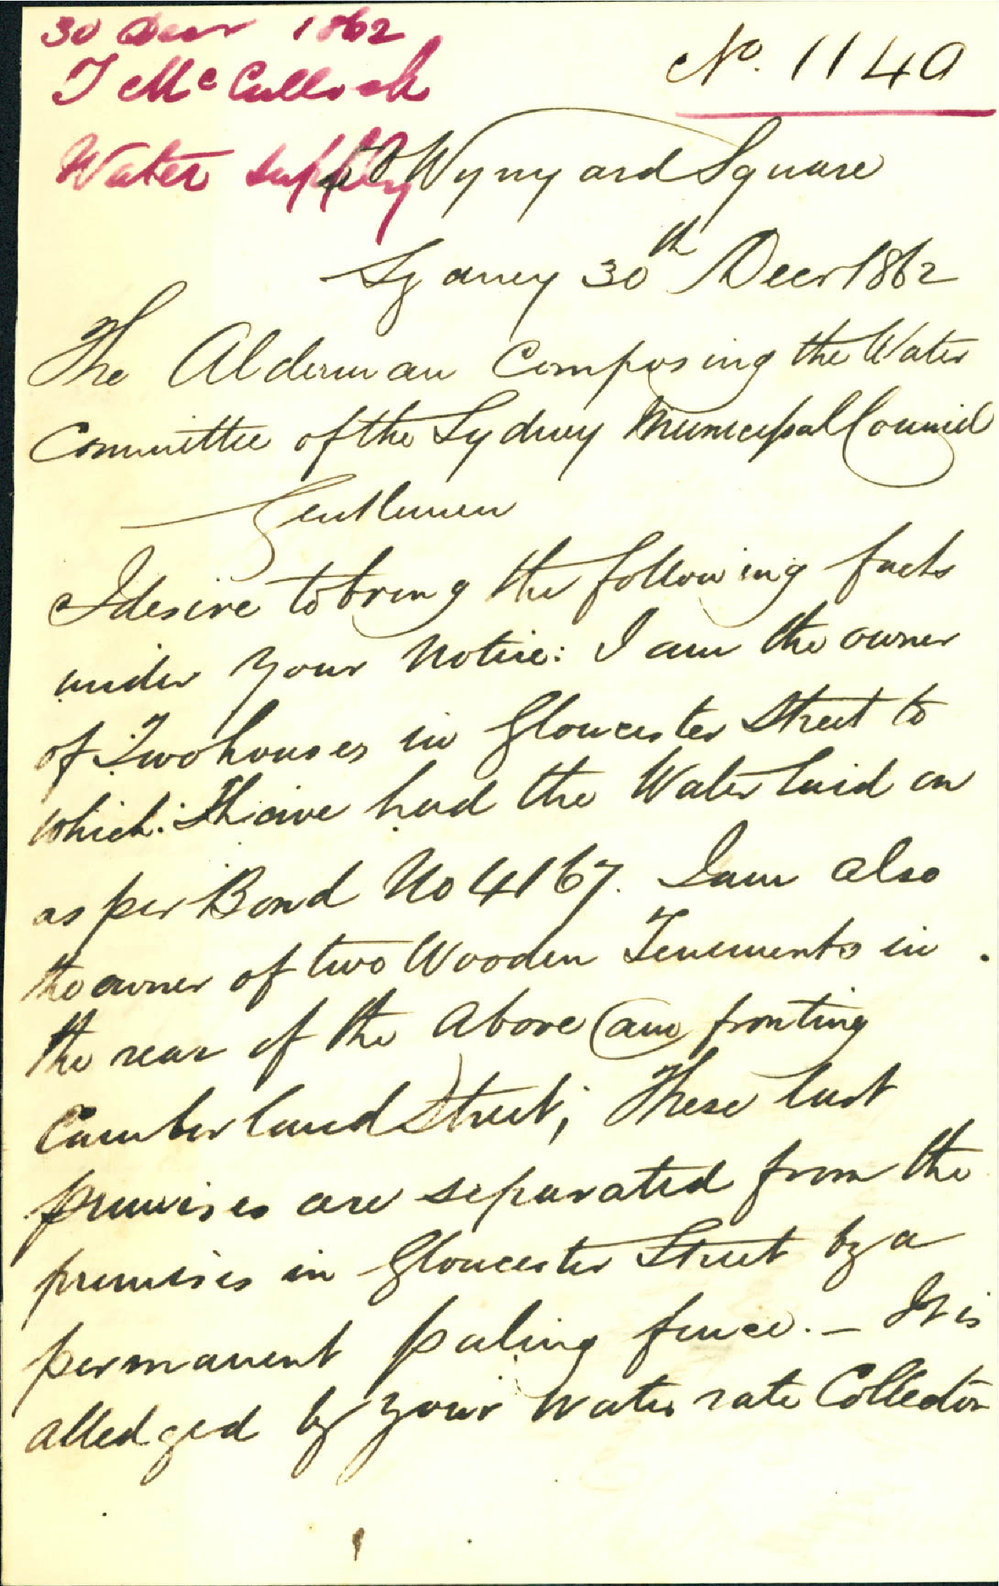 30 Decr 1862
J McCulloch
Water supply
No. 1140
Wynyard Square
Sydney 30th Decr 1862
The Alderman Composing the Water
Committee of the Sydney Municipal Council
Gentlemen
I desire to bring the following facts
under your Notice: I am the owner
of Two houses in Gloucester Street to
which I have had the Water laid on
as per Bond No 4167. I am also
the owner of two Wooden Tenements in
the rear of the Above (and fronting
Cumberland Street; These last
premises are separated from the
premises in Gloucester Street by a
permanent paling fence. — It is
alledged by your Water rate Collector